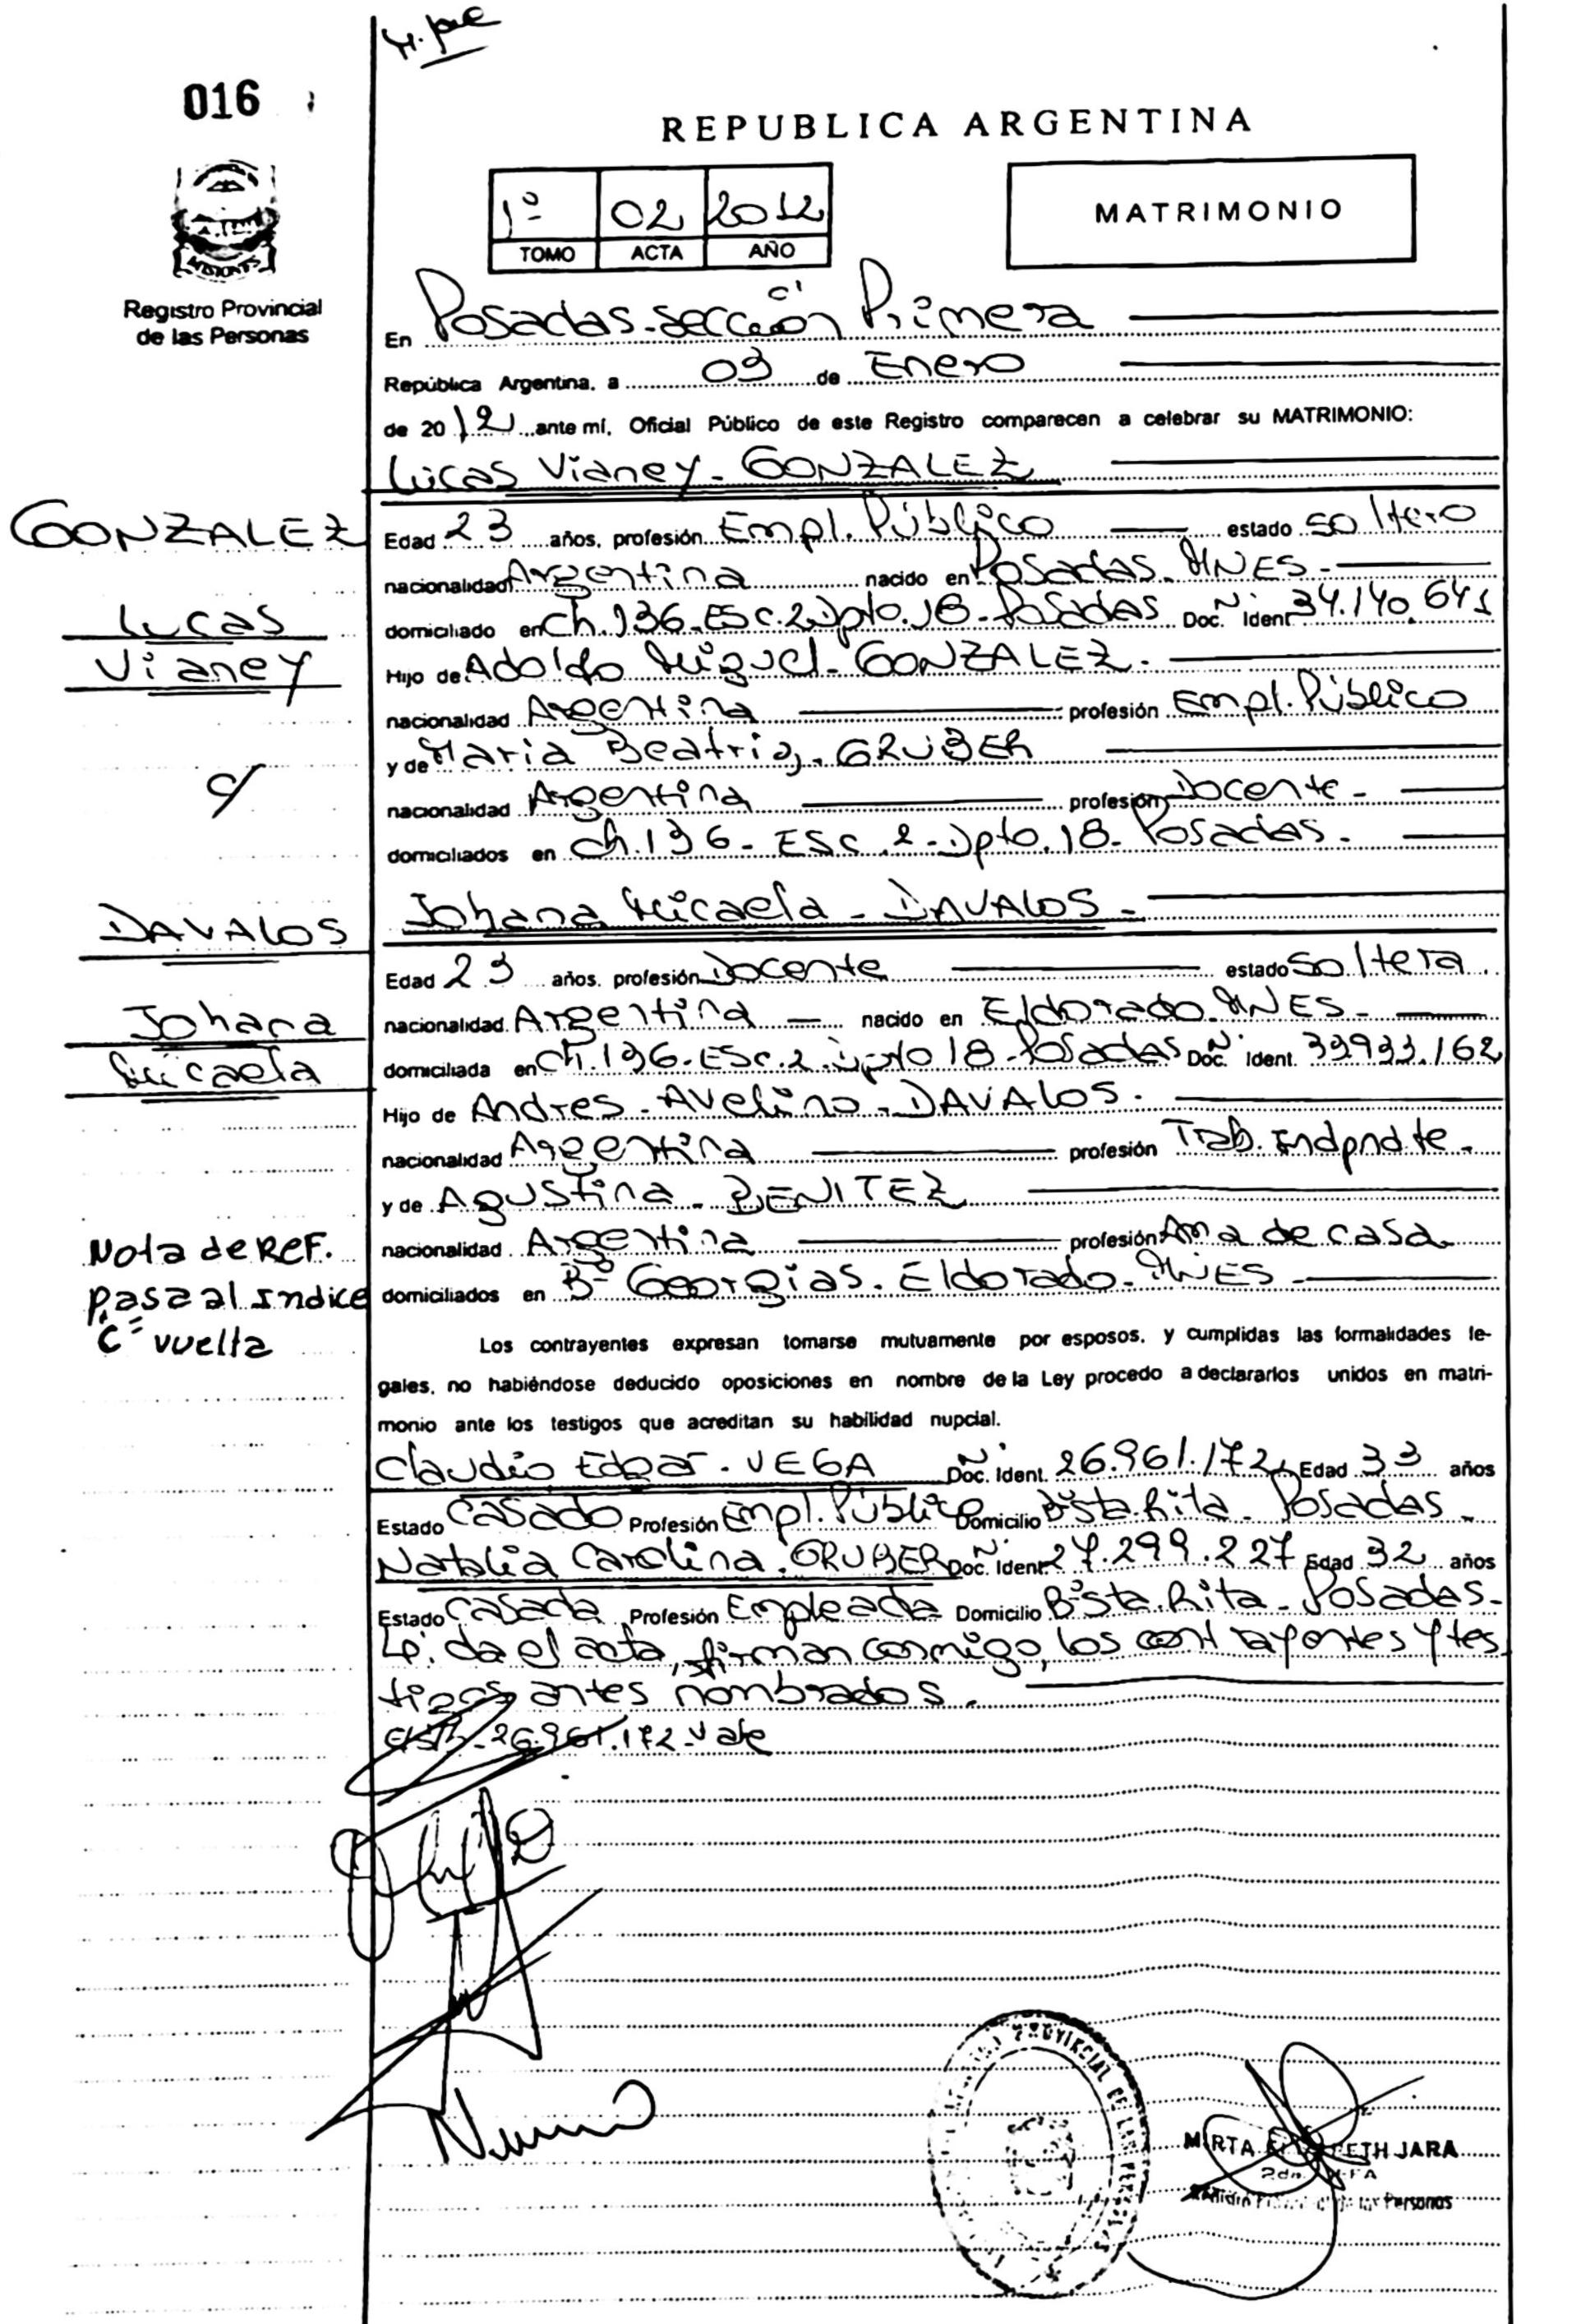 016
REPUBLICA ARGENTINA
1º 02 2012
TOMO ACTA AÑO
MATRIMONIO
MISIONES
Registro Provincial
de las Personas
En Posadas-Sección Primera
República Argentina, a 03 de Enero
de 2012 ante mí, Oficial Público de este Registro comparecen a celebrar su MATRIMONIO:
Lucas Vianey - GONZALEZ
GONZALEZ
Lucas
Vianey
c/
DAVALOS
Johana
Micaela
Nota de REF.
Pasa al Indice
vuelta
Edad 23 años, profesión Empl. Público estado soltero
nacionalidad Argentina nacido en Posadas. MNES.
domiciliado en Ch. 136. Esc. 2 Dpto. 18 - Posadas Doc. Nº Ident 34.140.641
Hijo de Adolfo Miguel - GONZALEZ.
nacionalidad Argentina profesión Empl. Público
y de Maria Beatriz. GRUBER
nacionalidad Argentina profesión Docente -
domiciliados en Ch. 136 - Esc. 2 - Dpto. 18 - Posadas.
Johana Micaela - DAVALOS -
Edad 23 años, profesión Docente estado Soltera.
nacionalidad Argentina - nacido en Eldorado. MNES -
domiciliada en Ch. 136. Esc. 2. Dpto 18 - Posadas Doc. Nº Ident. 33933.162
Hijo de Andres - Avelino - DAVALOS.
nacionalidad Argentina profesión Trab. Indpndte.
y de Agustina - BENITEZ
nacionalidad Argentina profesión Ama de casa
domiciliados en Bº Georgias. Eldorado. MNES -
Los contrayentes expresan tomarse mutuamente por esposos, y cumplidas las formalidades le-
gales, no habiéndose deducido oposiciones en nombre de la Ley procedo a declararlos unidos en matri-
monio ante los testigos que acreditan su habilidad nupcial.
Claudio Edgar - VEGA Doc. Nº Ident. 26.961.172 Edad 33 años
Estado Casado Profesión Empl. Público Domicilio Bº Sta. Rita - Posadas -
Natalia Carolina. GRUBER Doc. Nº Ident 27.299.227 Edad 32 años
Estado Casada Profesión Empleada Domicilio Bº Sta. Rita - Posadas -
Leída el acta, firman conmigo, los contrayentes y tes
tigos antes nombrados.
26.961.172 - Vale
PROVINCIAL DE LAS PERSONAS
MIRTA JARA
Personas